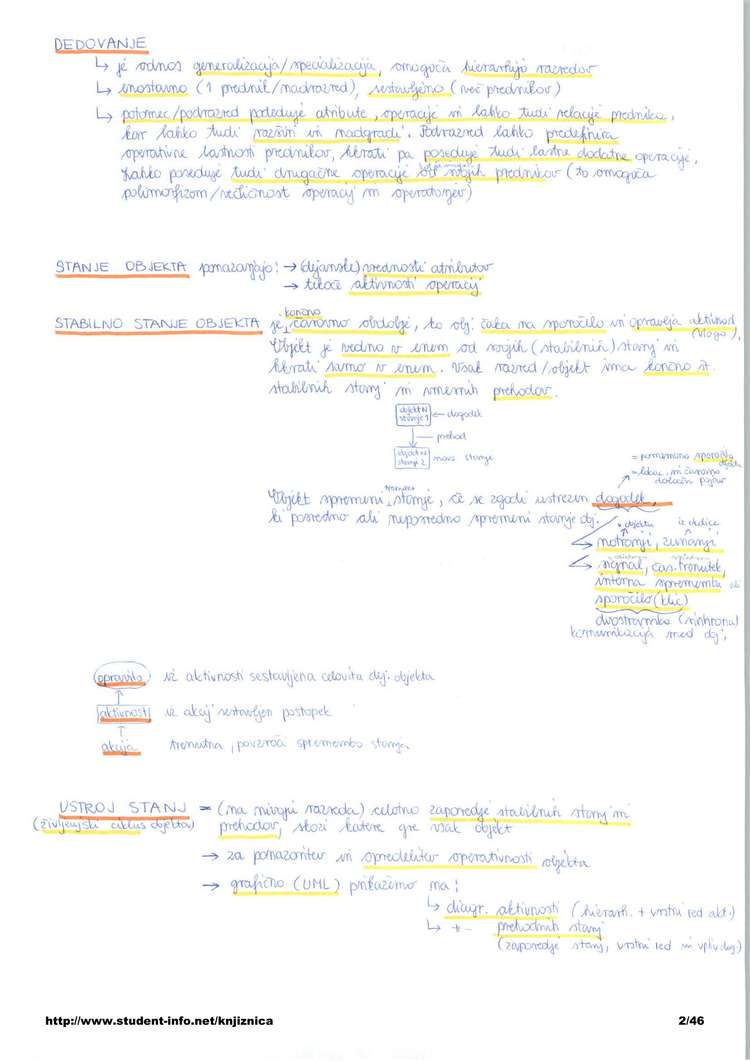 DEDOVANJE
↳ je odnos generalizacija/specializacija, omogoča hierarhijo razredov
↳ enostavno (1 prednik/nadrazred), sestavljeno (več prednikov)
↳ potomec/podrazred podeduje atribute, operacije in lahko tudi relacije prednika,
kar lahko tudi razširi in nadgradi. Podrazred lahko predefinira
operativne lastnosti prednikov, hkrati pa poseduje tudi lastne dodatne operacije.
Lahko poseduje tudi drugačne operacije od svojih prednikov (to omogoča
polimorfizem/večličnost operacij in operatorjev)
STANJE OBJEKTA ponazarjajo: → (dejanske) vrednosti atributov
→ tekoče aktivnosti operacij
STABILNO STANJE OBJEKTA je končno časovno obdobje, ko obj. čaka na sporočilo in opravlja aktivnost
(vlogo).
Objekt je vedno v enem od svojih (stabilnih) stanj in
hkrati samo v enem. Vsak razred/objekt ima končno št.
stabilnih stanj in vmesnih prehodov.
objekt N
stanje 1 ← dogodek
prehod
objekt N
stanje 2 novo stanje
= pomembno sporočilo
objektu
= lokac. in časovno
določen pojav
trenutno
Objekt spremeni stanje, če se zgodi ustrezen dogodek,
ki posredno ali neposredno spremeni stanje obj.
v objektu iz okolice
notranji, zunanji
signal, čas. trenutek,
interna sprememba ali
sporočilo (klic)
dvostranska (sinhrona)
komunikacija med obj.
opravilo iz aktivnosti sestavljena celovita dej. objekta
↑
aktivnost iz akcij sestavljen postopek
↑
akcija trenutna, povzroči spremembo stanja
USTROJ STANJ = (na nivoju razreda) celotno zaporedje stabilnih stanj in
(življenjski ciklus objekta) prehodov, skozi katere gre vsak objekt
→ za ponazoritev in opredelitev operativnosti objekta
→ grafično (UML) prikažemo na:
↳ diagr. aktivnosti (hierarh. + vrstni red akt.)
↳ -"- prehodnih stanj
(zaporedje stanj, vrstni red in vpliv dog.)
http://www.student-info.net/knjiznica 2/46